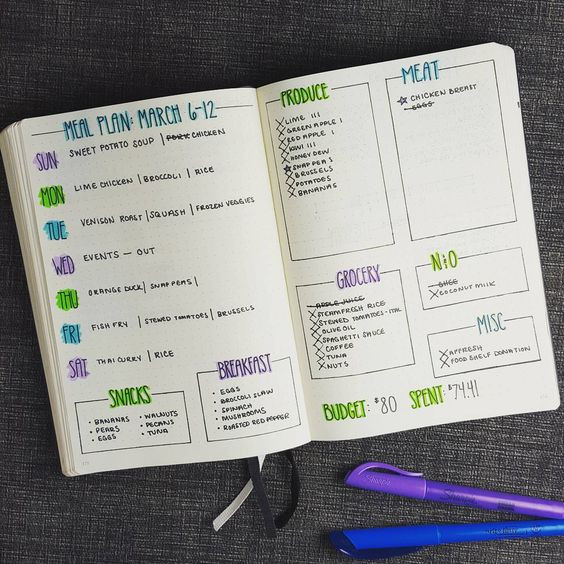 MEAL PLAN: MARCH 6-12
SUN SWEET POTATO SOUP | PORK CHICKEN
MON LIME CHICKEN | BROCCOLI | RICE
TUE VENISON ROAST | SQUASH | FROZEN VEGGIES
WED EVENTS — OUT
THU ORANGE DUCK | SNAP PEAS |
FRI FISH FRY | STEWED TOMATOES | BRUSSELS
SAT THAI CURRY | RICE
SNACKS
• BANANAS
• PEARS
• EGGS
• WALNUTS
• PECANS
• TUNA
BREAKFAST
• EGGS
• BROCCOLI SLAW
• SPINACH
• MUSHROOMS
• ROASTED RED PEPPER
PRODUCE
LIME III
GREEN APPLE I
RED APPLE I
KIWI III
HONEY DEW
SNAP PEAS
BRUSSELS
POTATOES
BANANAS
MEAT
CHICKEN BREAST
EGGS
GROCERY
APPLE JUICE
STEAMFRESH RICE
STEWED TOMATOES - ITAL
OLIVE OIL
SPAGHETTI SAUCE
COFFEE
TUNA
NUTS
N&O
GHEE
COCONUT MILK
MISC
AFFRESH
FOOD SHELF DONATION
BUDGET: $80 SPENT: $74.41
Sharpie